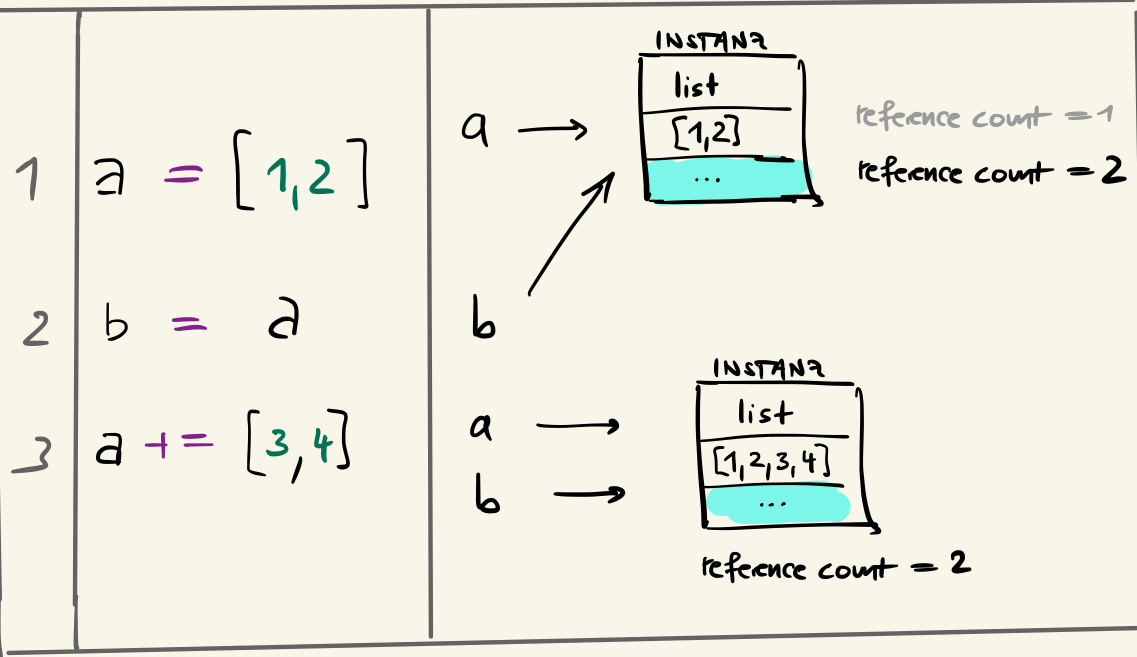 1 a = [1,2]
2 b = a
3 a += [3,4]
INSTANZ
list
a → [1,2]
...
reference count = 1
reference count = 2
b
INSTANZ
list
a →
[1,2,3,4]
b →
...
reference count = 2